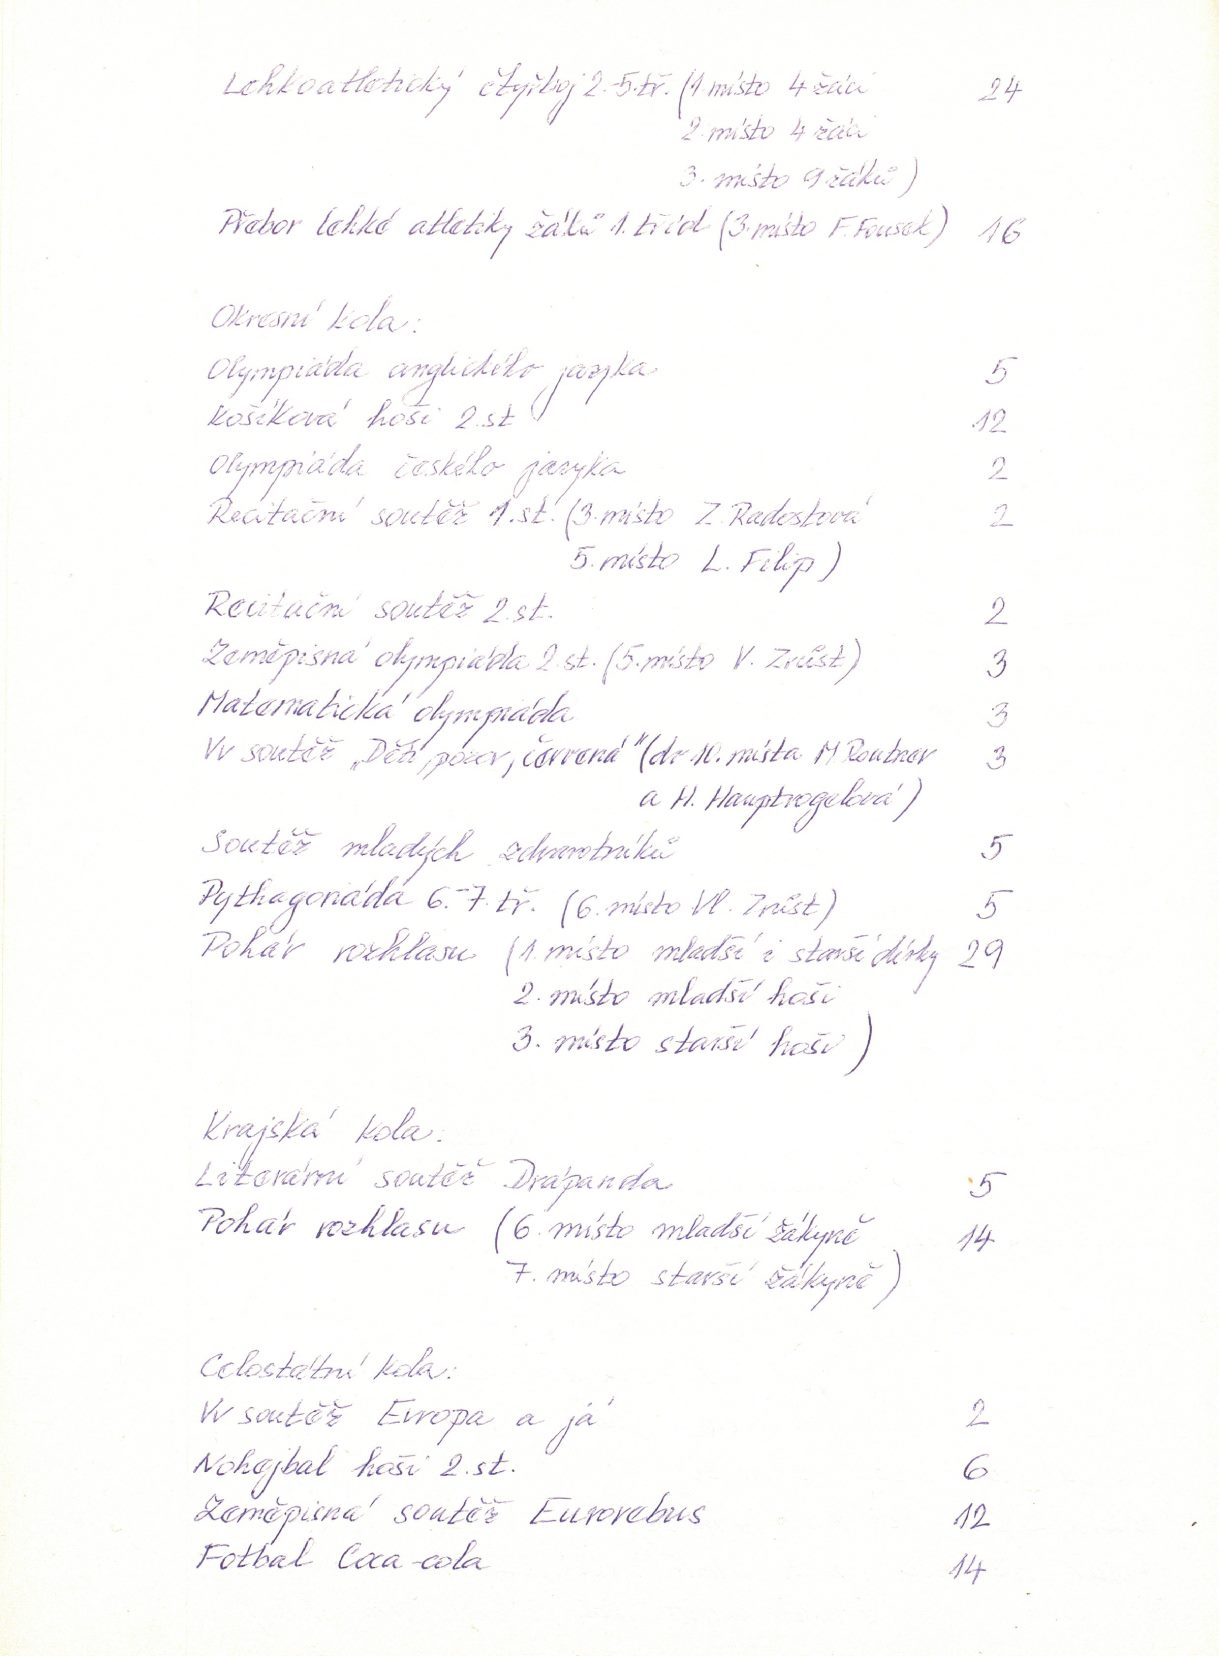 Lehkoatletický čtyřboj 2.-5.tř. (1. místo 4 žáci 24
2. místo 4 žáci
3. místo 9 žáků)
Přebor lehké atletiky žáků 1. tříd (3. místo F. Fousek) 16
Okresní kola:
Olympiáda anglického jazyka 5
Košíková hoši 2.st 12
Olympiáda českého jazyka 2
Recitační soutěž 1.st. (3. místo Z. Radostová 2
5. místo L. Filip)
Recitační soutěž 2.st. 2
Zeměpisná olympiáda 2.st. (5. místo V. Zrůst) 3
Matematická olympiáda 3
Vv soutěž „Děti, pozor, červená" (do 10. místa M Routner 3
a H. Hauptvogelová)
Soutěž mladých zdravotníků 5
Pythagoriáda 6.-7. tř. (6. místo Vl. Zrůst) 5
Pohár rozhlasu (1. místo mladší i starší dívky 29
2. místo mladší hoši
3. místo starší hoši)
Krajská kola:
Literární soutěž Drápanda 5
Pohár rozhlasu (6. místo mladší žákyně 14
7. místo starší žákyně)
Celostátní kola:
Vv soutěž Evropa a já 2
Nohejbal hoši 2.st. 6
Zeměpisná soutěž Eurorebus 12
Fotbal Coca-cola 14